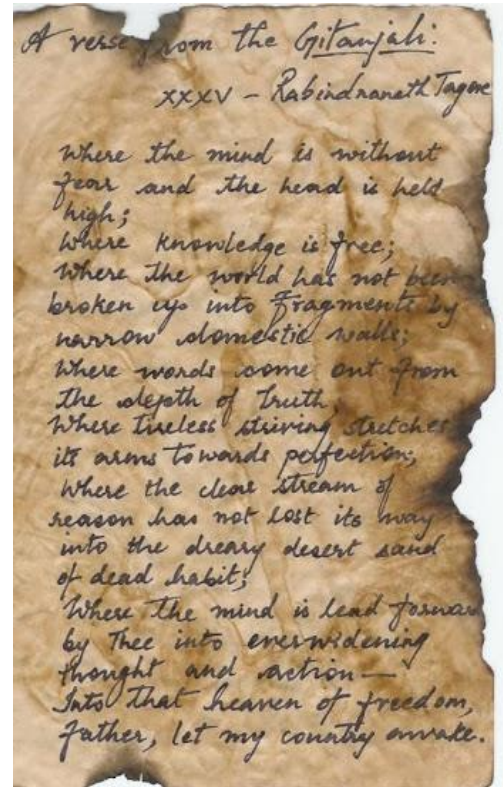 A verse from the Gitanjali:
XXXV - Rabindranath Tagore
Where the mind is without
fear and the head is held
high;
Where knowledge is free;
Where the world has not been
broken up into fragments by
narrow domestic walls;
Where words come out from
the depth of truth;
Where tireless striving stretches
its arms towards perfection;
Where the clear stream of
reason has not lost its way
into the dreary desert sand
of dead habit;
Where the mind is lead forward
by Thee into everwidening
thought and action—
Into that heaven of freedom,
Father, let my country awake.